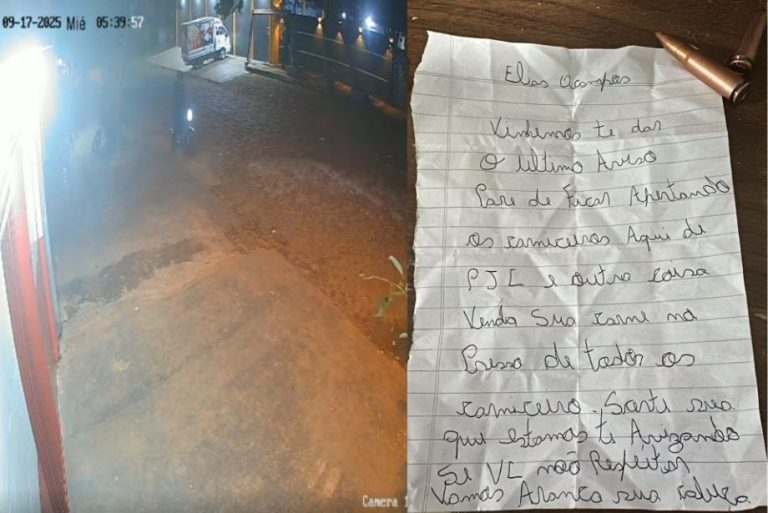 09-17-2025 Mié 05:39:57
Camera 1
Elias Ocampos
Vinhemos te dar
O Ultimo Aviso
Pare de Ficar Apertando
os carniceiros Aqui de
PJC e outra coisa
Venda Sua carne no
Presso de todos os
carniceiro. Sorte sua
que estamos te Avizando
Se VC não Respeitar
Vamos Aranca sua cabeza